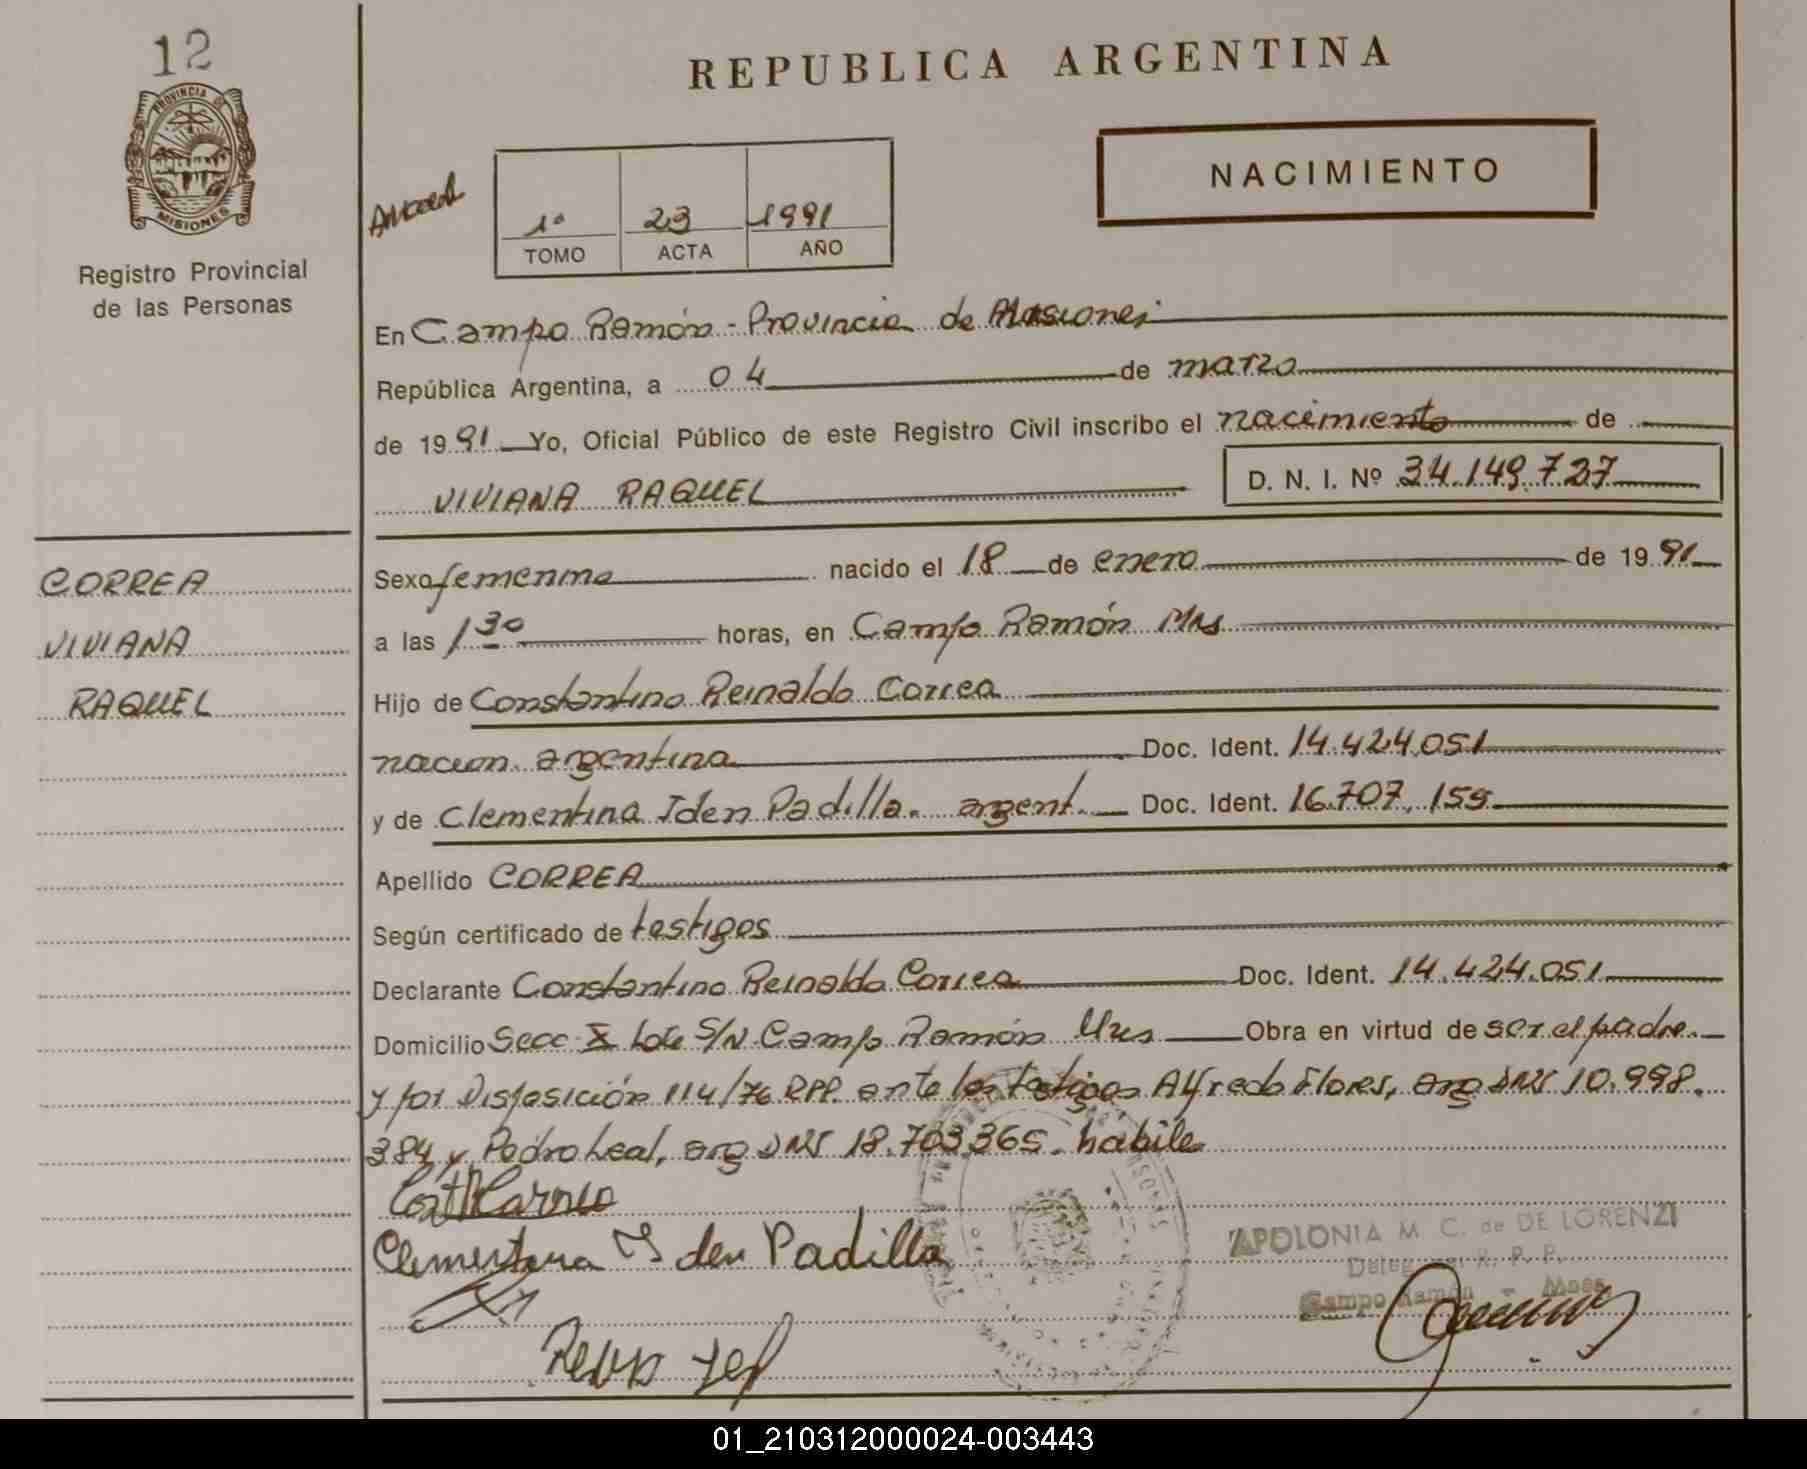 12
PROVINCIA DE
MISIONES
Registro Provincial
de las Personas
REPUBLICA ARGENTINA
NACIMIENTO
1º 23 1991
TOMO ACTA AÑO
En Campo Ramón - Provincia de Misiones
República Argentina, a 04 de marzo
de 1991 Yo, Oficial Público de este Registro Civil inscribo el nacimiento de
VIVIANA RAQUEL D. N. I. Nº 34.149.727
CORREA
VIVIANA
RAQUEL
Sexo femenino nacido el 18 de enero de 1991
a las 1 30 horas, en Campo Ramón Mns
Hijo de Constantino Reinaldo Correa
nacion. argentina Doc. Ident. 14.424.051
y de Clementina Iden Padilla. argent. Doc. Ident. 16.707.159
Apellido CORREA
Según certificado de testigos
Declarante Constantino Reinaldo Correa Doc. Ident. 14.424.051
Domicilio Secc X Lote S/N Campo Ramón Mns Obra en virtud de ser el padre.
y por Disposición 114/76 RPP. ante los testigos Alfredo Flores, arg DNI 10.998.
384 y Pedro Leal, arg DNI 18.703.365. habile
Clementina Iden Padilla
APOLONIA M. C. de DE LORENZI
R. P. P.
Campo Ramón - Mnes
01_210312000024-003443